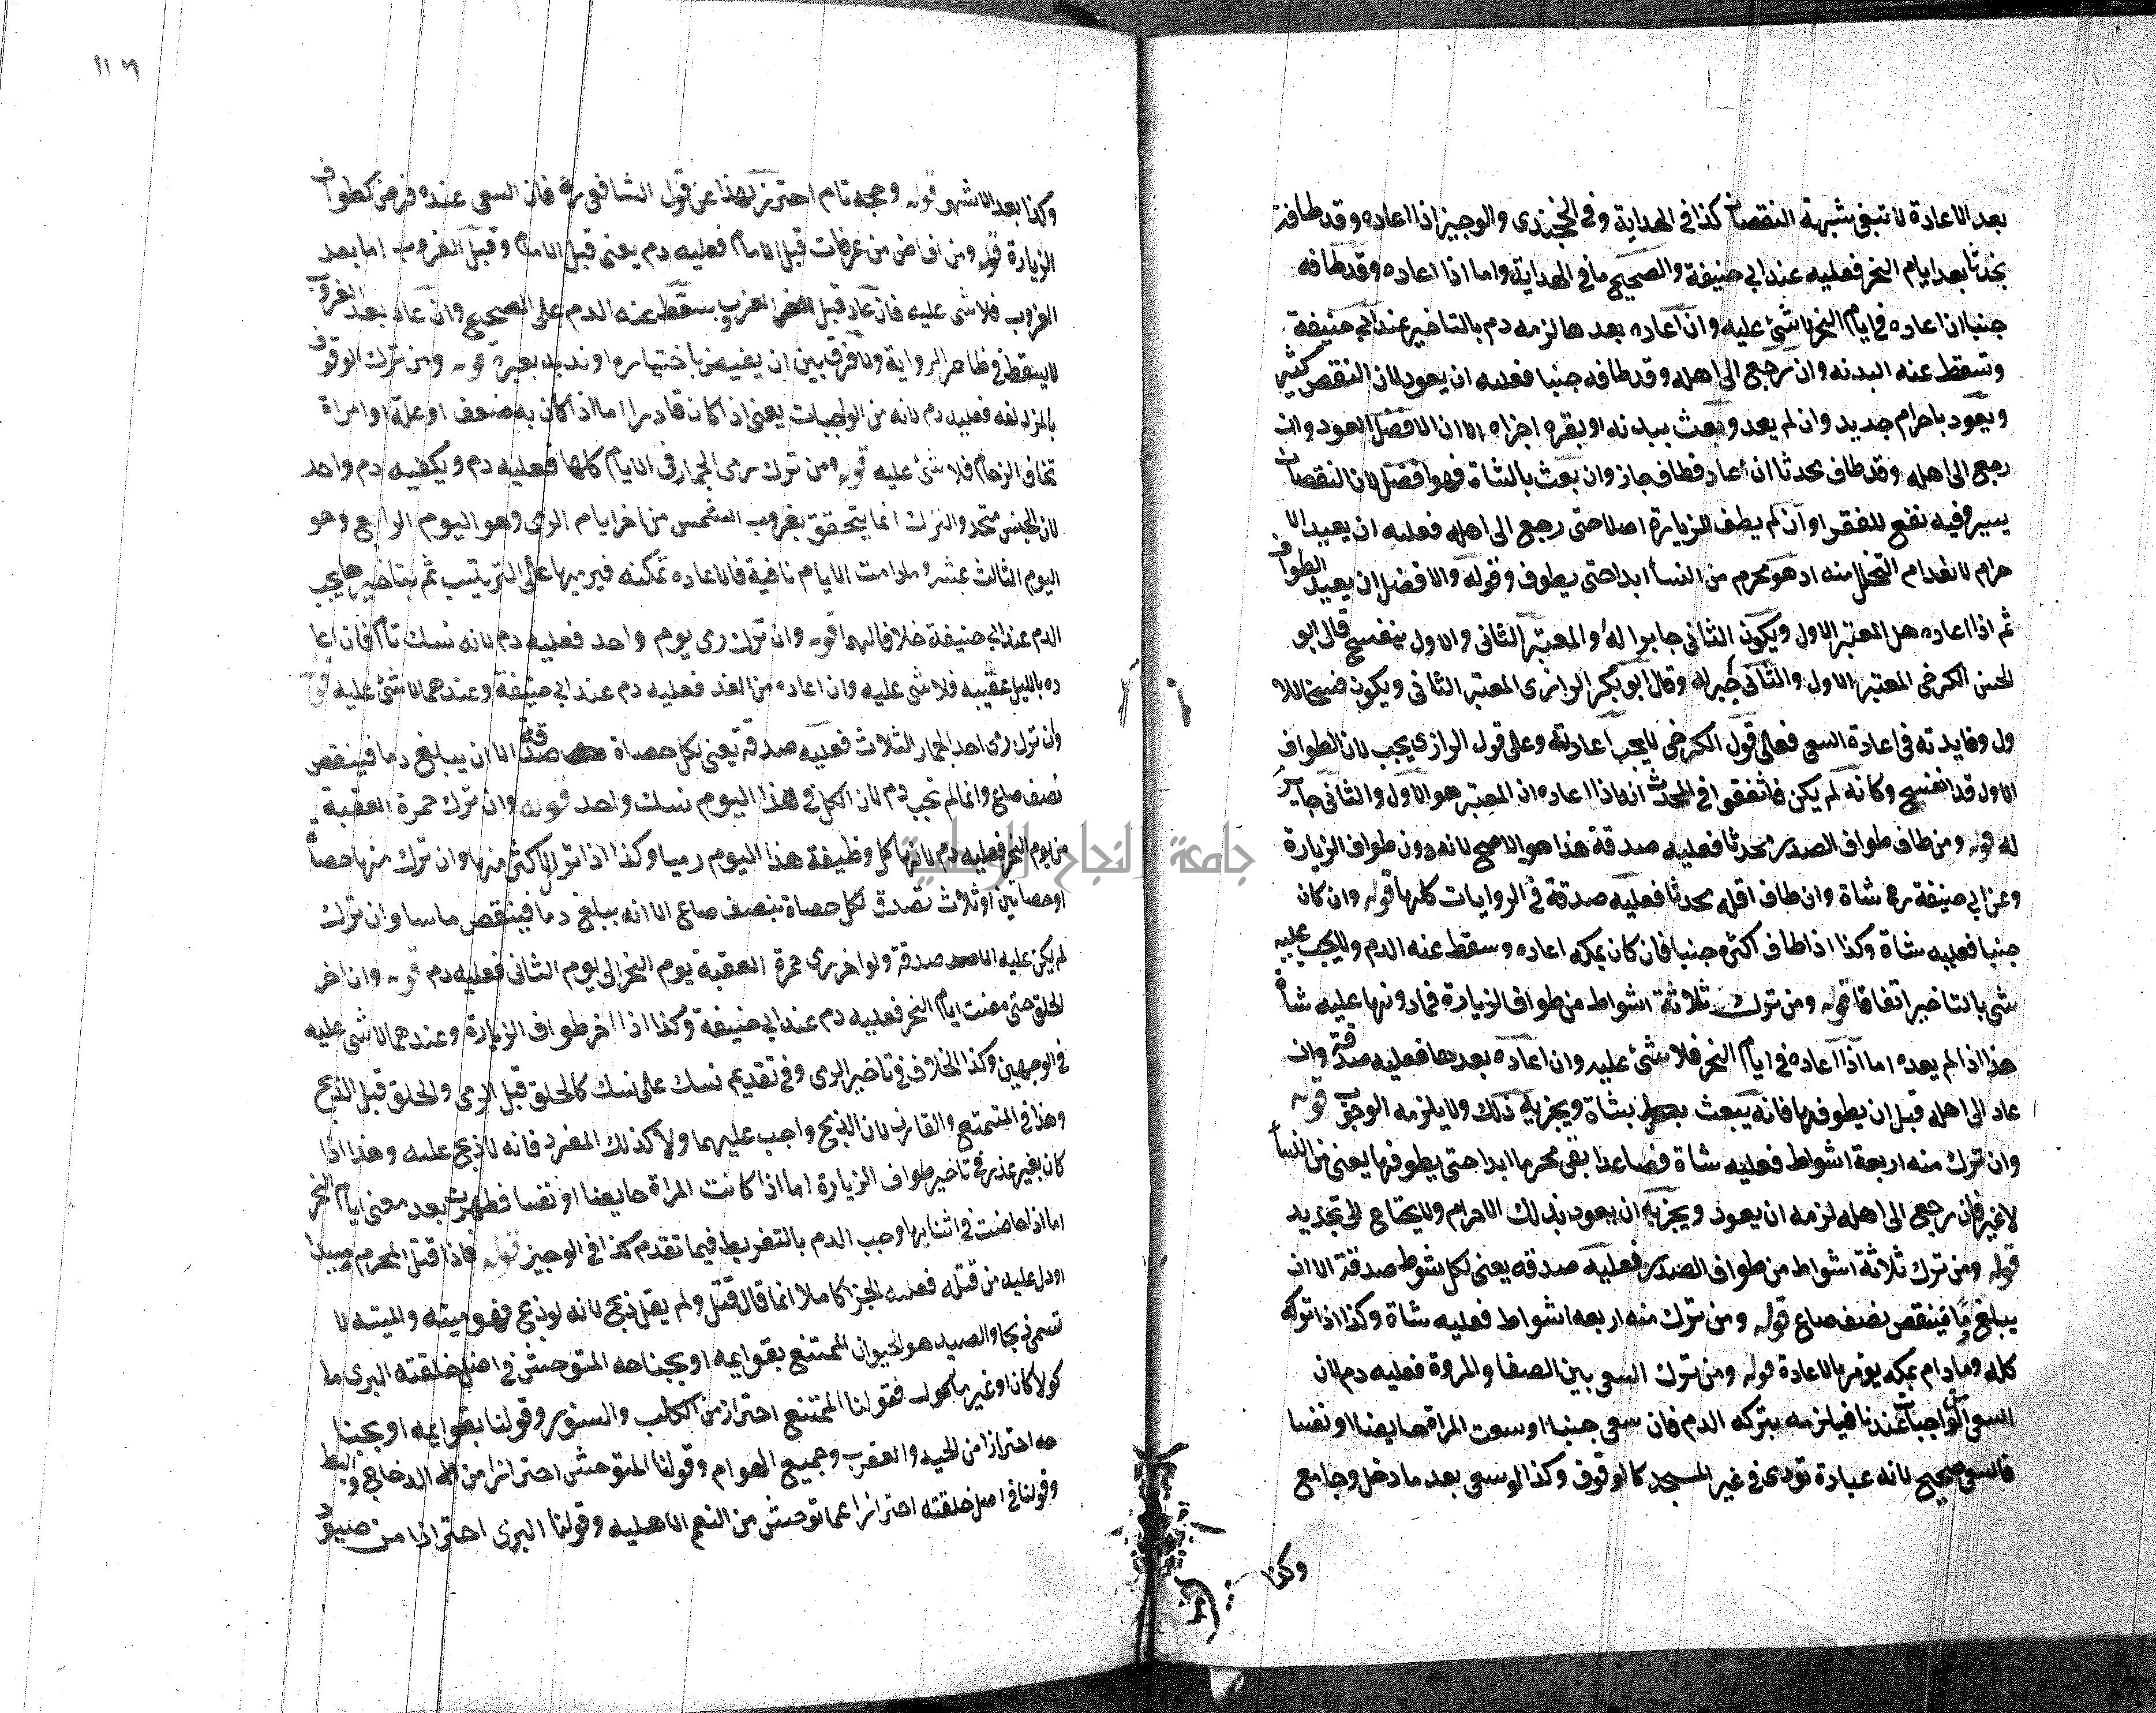 بعد الاعادة لا تبقى شبهة النقصان كذا في الهداية وفي الخجندي والوجيز اذا اعاده وقد طافه
محدثا بعد ايام النحر فعليه عند ابي حنيفة والصحيح ما في الهداية واما اذا اعاده وقد طافه
جنبا ان اعاده في ايام النحر لا شئ عليه وان اعاده بعدها لزمه دم بالتاخير عند ابي حنيفة
وتسقط عنه البدنه وان رجع الى اهله وقد طافه جنبا فعليه ان يعود لان النقص كثير
ويعود باحرام جديد وان لم يعد وبعث ببدنه او بقره اجزاه الا ان الافضل العود وان
رجع الى اهله وقد طاف محدثا ان عاد فطاف جاز وان بعث بالشاة فهو افضل لان النقصان
يسير وفيه نفع للفقرا وان لم يطف للزيارة اصلا حتى رجع الى اهله فعليه ان يعيد الا
حرام لانعدام التحلل منه اد هو محرم من النسا ابدا حتى يطوف وقوله والافضل ان يعيد الطواف
ثم اذا اعاده هل المعتبر الاول ويكون الثاني جابرا له والمعتبر الثاني والاول ينفسح قال ابو
الحسن الكرخي المعتبر الاول والثاني جبر له وقال ابو بكر الرازي المعتبر الثاني ويكون فسخا للا
ول وفايدته في اعادة السعي فعلى قول الكرخي لا يجب اعادته وعلى قول الرازي يجب لان الطواف
الاول قد انفسح وكانه لم يكن فاتفقوا في المحدث انه اذا اعاده ان المعتبر هو الاول والثاني جابر
له قوله ومن طاف طواف الصدر محدثا فعليه صدقة هذا هو الاصح لانه دون طواف الزيارة
وعن ابي حنيفة رح شاة وان طاف اقله محدثا فعليه صدقة في الروايات كلها قوله وان كان
جنبا فعليه شاة وكذا اذا طاف اكثره جنبا فان كان بمكه اعاده وسقط عنه الدم ولا يجب عليه
شى بالتاخير اتفاقا قوله ومن ترك ثلاثة اشواط من طواف الزيارة فما دونها عليه شاة
هذا اذا لم يعده اما اذا اعاده في ايام النحر فلا شئ عليه وان اعاده بعدها فعليه صدقة وان
عاد الى اهله قبل ان يطوفها فانه يبعث بشاة ويجزيه ذلك ولا يلزمه الوجوب قوله
وان ترك منه اربعة اشواط فعليه شاة فصاعدا بقى محرما ابدا حتى يطوفها يعني من النسا
لا غير فان رجع الى اهله لزمه ان يعود ويجزيه ان يعود بذلك الاحرام ولا يحتاج الى تجديد
قوله ومن ترك ثلاثة اشواط من طواف الصدر فعليه صدقه يعنى لكل شوط صدقة الا ان
يبلغ دما فينقص نصف صاع قوله ومن ترك منه اربعه اشواط فعليه شاة وكذا اذا تركه
كله وما دام بمكه يؤمر بالاعادة قوله ومن ترك السعى بين الصفا والمروة فعليه دم لان
السعى من الواجبات عندنا فيلزمه بتركه الدم فان سعى جنبا او سعت المراة حايضا او نفسا
فالسعى صحيح لانه عبادة تودى في غير المسجد كالوقوف وكذا لو سعى بعد ما دخل وجامع
وكذا
١١٦
وكذا بعد الاشهر قوله وحجه تام احترز بهذا عن قول الشافعي ره فان السعي عنده فرض كطواف
الزيارة قوله ومن افاض من عرفات قبل الامام فعليه دم يعنى قبل الامام وقبل الغروب اما بعد
الغروب فلا شى عليه فان عاد قبل الغروب سقط عنه الدم على الصحيح وان عاد بعد الغروب
لا يسقط في ظاهر الرواية ولا فرق بين ان يفيض باختياره او ند به بعيره قوله ومن ترك الوقوف
بالمزدلفه فعليه دم لانه من الواجبات يعنى اذا كان قادرا اما اذا كان به ضعف او علة او امراة
تخاف الزحام فلا شئ عليه قوله ومن ترك رمى الجمار في الايام كلها فعليه دم ويكفيه دم واحد
لان الجنس متحد والترك انما يتحقق بغروب الشمس من اخر ايام الرمى وهو اليوم الرابع وهو
اليوم الثالث عشر وما دامت الايام باقية فالاعاده ممكنه فيرميها على الترتيب ثم بتاخيرها يجب
الدم عند ابي حنيفة خلافا لهما قوله وان ترك رمى يوم واحد فعليه دم لانه نسك تام فان اعا
ده بالليل عقيبه فلا شى عليه وان اعاده من الغد فعليه دم عند ابي حنيفة وعندهما لا شئ عليه قوله
وان ترك رمى احد الجمار الثلاث فعليه صدقة يعنى لكل حصاة صدقة الا ان يبلغ دما فينقص
نصف صاع وانما لم تجب دم لان الكل في هذا اليوم نسك واحد قوله وان ترك جمرة العقبة
من يوم النحر فعليه دم لانها كل وظيفة هذا اليوم رميا وكذا اذا ترك الاكثر منها وان ترك منها حصاة
او حصاتين او ثلاث تصدق لكل حصاة بنصف صاع الا انه يبلغ دما فينقص ماسا وان ترك
لم يكن عليه الا صدقة ولو اخر رمى جمرة العقبة يوم النحر الى يوم الثاني فعليه دم قوله وان اخر
الحلق حتى مضت ايام النحر فعليه دم عند ابي حنيفة وكذا اذا اخر طواف الزيارة وعندهما لا شى عليه
في الوجهين وكذا الخلاف في تاخير الرمى وفي تقديم نسك على نسك كالحلق قبل الرمى والحلق قبل الذبح
وهذا في المتمتع والقارن لان الذبح واجب عليهما ولا كذلك المفرد فانه لا ذبح عليه وهذا اذا
كان بغير عذر في تاخير طواف الزيارة اما اذا كانت المراة حايضا او نفسا فطهرت بعد مضى ايام النحر
اما اذا حاضت في اثنايها وجب الدم بالتفريط فيما تقدم كذا في الوجيز قوله فاذا قتل المحرم صيدا
او دل عليه من قتله فعليه الجزا كاملا انما قال قتل ولم يقل ذبح لانه لو ذبح فهو ميته والميته لا
تسمى ذبحا والصيد هو الحيوان الممتنع بقوايمه او بجناحه المتوحش في اصل خلقته البرى ما
كولا كان او غير ماكول فقولنا الممتنع احتراز من الكلب والسنور وقولنا بقوايمه او بجنا
حه احترازا من الحيه والعقرب وجميع الهوام وقولنا المتوحش احترازا من الدجاج والبط
وقولنا في اصل خلقته احترازا عما توحش من النعم الاهليه وقولنا البرى احترازا من صيود
جامعة النجاح الوطنية